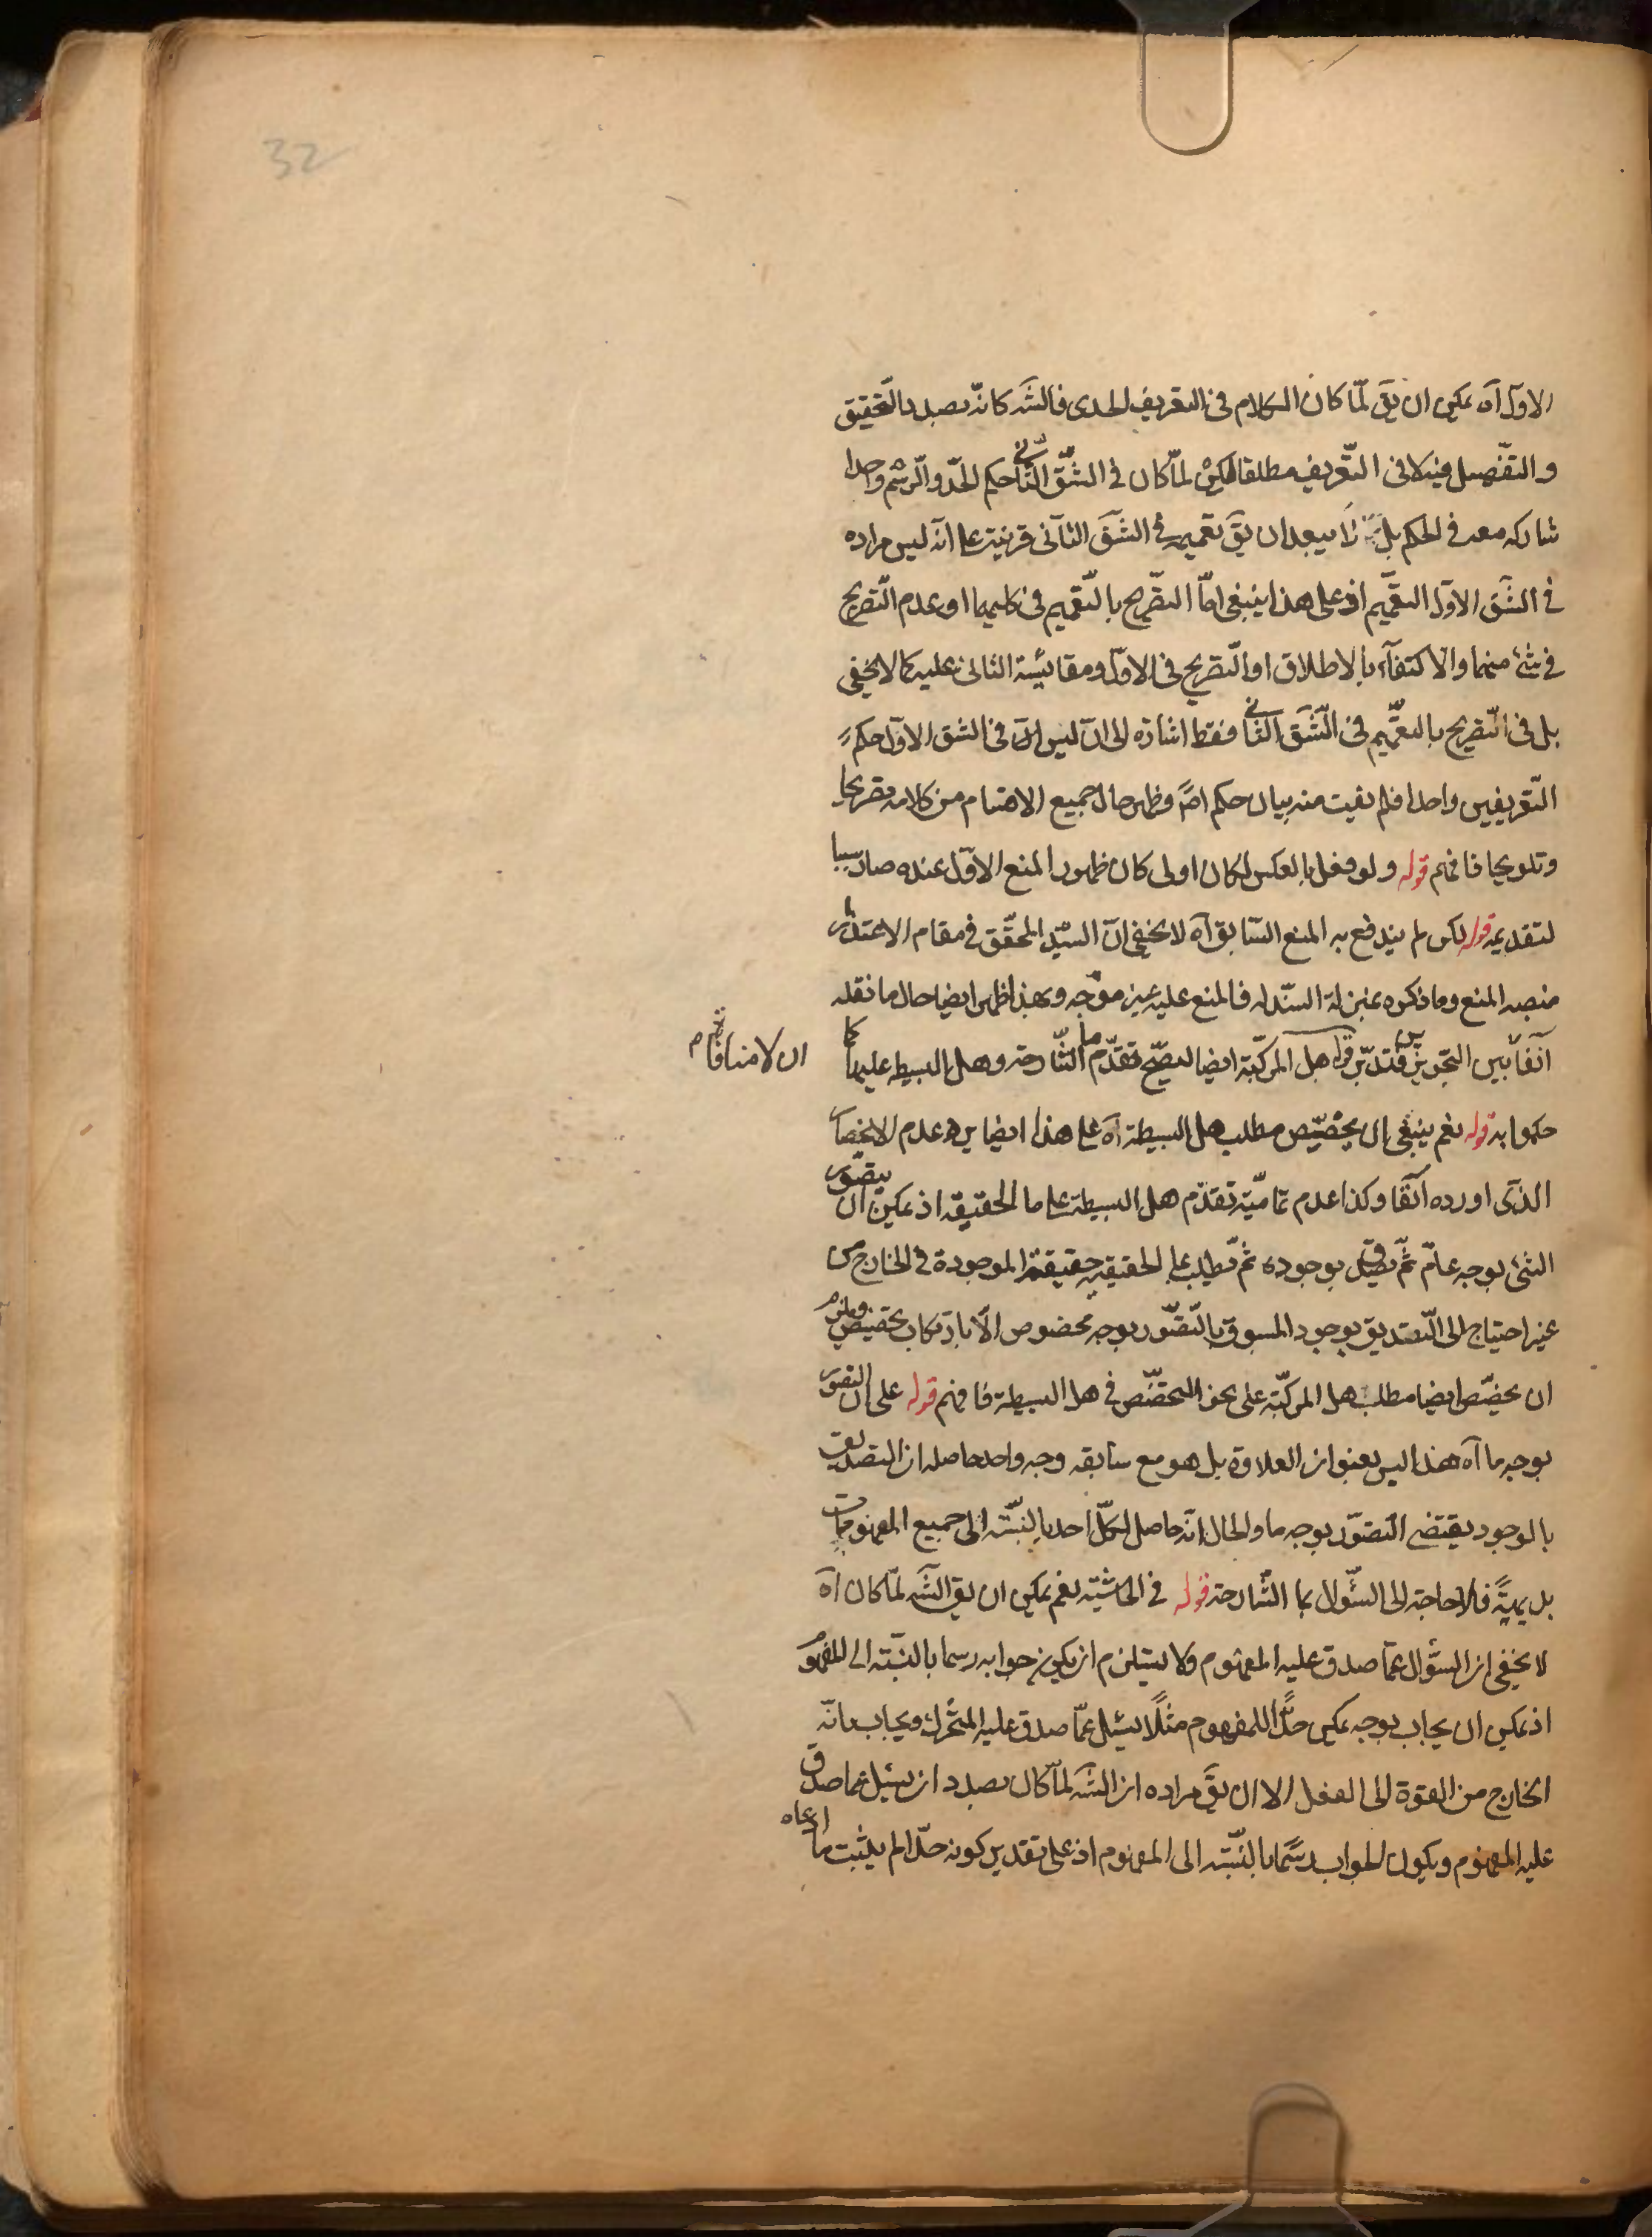 32
الاول آه يمكن ان يق لمّا كان الكلام فى التعريف الحدى فالشّه كانّه بصدد التّحقيق
و التفّصيل فيه لا فى التّعريف مطلقا لكن لمّا كان فى الشقّ الثّانى حكم الحدّ و الرّسم واحدا
شاركه معه فى الحكم بل لا يبعد ان يقّ تعميمه فى الشّق الثّانى قرينة على انّه ليس مراده
فى الشّق الاوّل التعمّيم اذ على هذا ينبغى امّا التصّريح بالتّعميم فى كليهما او عدم التّصريح
فى شئ منهما و الاكتفآء بالاطلاق او التّصريح فى الاوّل و مقائيسة الثانى عليه كما لا يخفى
بل فى التّصريح بالتعمّيم فى الشّق الثّانى فقط اشارة الى ان ليس له فى الشق الاوّل حكم
التّعريفين واحدا فلم يفت منه بيان حكم اصً و ظهر حال جميع الاقسام من كلامه تصريحا
و تلويحا فافهم قوله و لو فعل بالعكس لكان اولى كان ظهور المنع الاوّل عنده صار سببا
لتقديمه قوله لكن لم يندفع به المنع السّابق آه لا يخفى انّ السيّد المحقّق فى مقام الاعتذار
منصبه المنع و ما ذكره بمنزلة السّند له فالمنع عليه غير موجّه و بهذا ظهر ايضا حال ما نقله
آنفا بين التجّويزين فتدبّر قوله هل المركبّة ايضا ليصّح تقدّم ما الشّارحة و هل البسيطه عليها كما
ان لا منافاة م
حكموا به قوله نعم ينبغى ان يخصّيص مطلب هل البسيطة آه على هذا ايضا يرد عدم الانحصار
الذّى اورده آنفًا و كذا عدم تماميّة تقدّم هل البسيطة على ما الحقيقه اذ يمكن ان يتصّور
الشئ بوجه عامّ ثمّ يصدّق بوجوده ثم يطلب بما الحقيقيه حقيقته الموجودة فى الخارج من
غير احتياج الى التّصديق بوجود المسبوق بالتّصّور بوجه مخصوص الّا بارتكاب تخصيص و يلزم
ان يخصّص ايضا مطلب هل المركبّة على نحو التخصّص فى هل البسيطة فافهم قوله على ان التصور
بوجه ما آه هذا ليس بعنوان العلاوة بل هو مع سابقه وجه واحد حاصله ان التصديق
بالوجود يقتضى التصّور بوجه ما و الحال انّه حاصل لكلّ احد بالنسّبة الى جميع المفهومات
بديهيةً فلا حاجة الى السّؤال بما الشّارحة قوله فى الحاشيّة نعم يمكن ان يق الشّه لمّا كان آه
لا يخفى ان السّؤال عمّا صدق عليه المفهوم و لا يستلزم ان يكون جوابه رسما بالنسّبة الى المفهوم
اذ يمكن ان يجاب بوجه يمكن حدًّا للمفهوم مثلًا يسئل عمّا صدق عليه المتحّرك و يجاب بانّه
الخارج من القوة الى الفعل الا ان يقّ مراده ان الشّه لمّا كان بصدد ان يسئل عمّا صدق
عليه المفهوم و يكون الجواب رسمًا بالنسّبة الى المفهوم اذ على تقدير كونه حدّا لم يثبت ما ادعاه